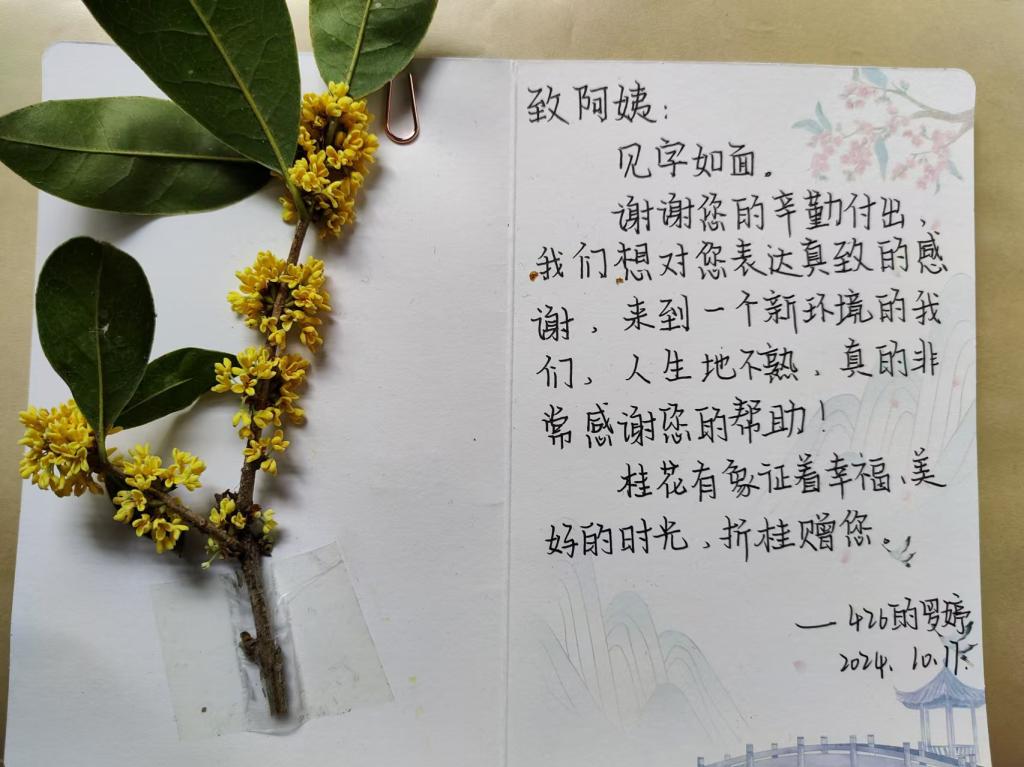 致阿姨：
见字如面。
谢谢您的辛勤付出，
我们想对您表达真致的感
谢，来到一个新环境的我
们，人生地不熟，真的非
常感谢您的帮助！
桂花有象证着幸福、美
好的时光，折桂赠您。
—426的罗婷
2024.10.17.